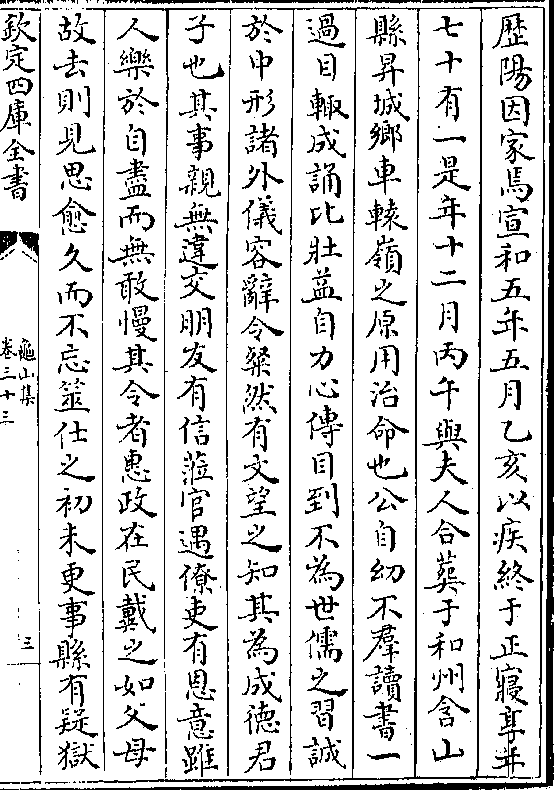 歴陽因家焉宣和五年五月乙亥以疾終于正寢享年
七十有一是年十二月丙午與夫人合葬于和州含山
縣昇城鄉車轅嶺之原用治命也公自幼不羣讀書一
過目輙成誦比壯益自力心傳目到不為世儒之習誠
於中形諸外儀容辭令粲然有文望之知其為成德君
子也其事親無違交朋友有信蒞官遇僚吏有恩意雖
人樂於自盡而無敢慢其令者惠政在民戴之如父母
故去則見思愈久而不忘筮仕之初未更事縣有疑獄
欽定四庫全書
龜山集
卷三十三
三